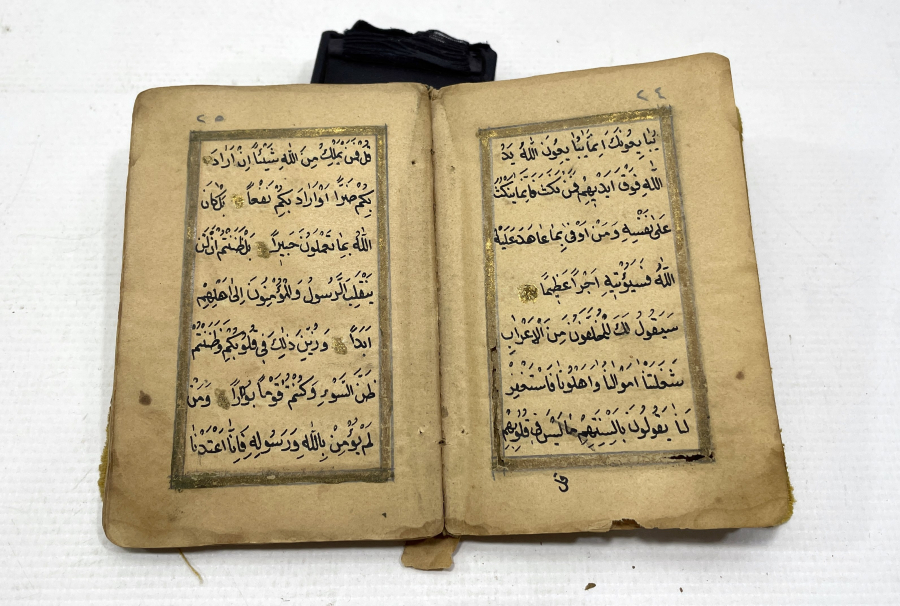 ٢٤
يُبَايِعُونَكَ اِنَّمَا يُبَايِعُونَ اللّٰهَ يَدُ
اللّٰهِ فَوْقَ اَيْدِيهِمْ فَمَنْ نَكَثَ فَاِنَّمَا يَنْكُثُ
عَلٰى نَفْسِهِ وَمَنْ اَوْفٰى بِمَا عَاهَدَ عَلَيْهُ
اللّٰهَ فَسَيُؤْتِيهِ اَجْرًا عَظِيمًا
سَيَقُولُ لَكَ الْمُخَلَّفُونَ مِنَ الْاَعْرَابِ
شَغَلَتْنَا اَمْوَالُنَا وَاَهْلُونَا فَاسْتَغْفِرْ
لَنَا يَقُولُونَ بِاَلْسِنَتِهِمْ مَا لَيْسَ فِي قُلُوبِهِمْ
قل
٢٥
قُلْ فَمَنْ يَمْلِكُ مِنَ اللّٰهِ شَيْئًا اِنْ اَرَادَ
بِكُمْ ضَرًّا اَوْ اَرَادَ بِكُمْ نَفْعًا بَلْ كَانَ
اللّٰهُ بِمَا تَعْمَلُونَ خَبِيرًا بَلْ ظَنَنْتُمْ اَنْ لَنْ
يَنْقَلِبَ الرَّسُولُ وَالْمُؤْمِنُونَ اِلٰى اَهْلِيهِمْ
اَبَدًا وَزُيِّنَ ذٰلِكَ فِي قُلُوبِكُمْ وَظَنَنْتُمْ
ظَنَّ السَّوْءِ وَكُنْتُمْ قَوْمًا بُورًا وَمَنْ
لَمْ يُؤْمِنْ بِاللّٰهِ وَرَسُولِهِ فَاِنَّا اَعْتَدْنَا